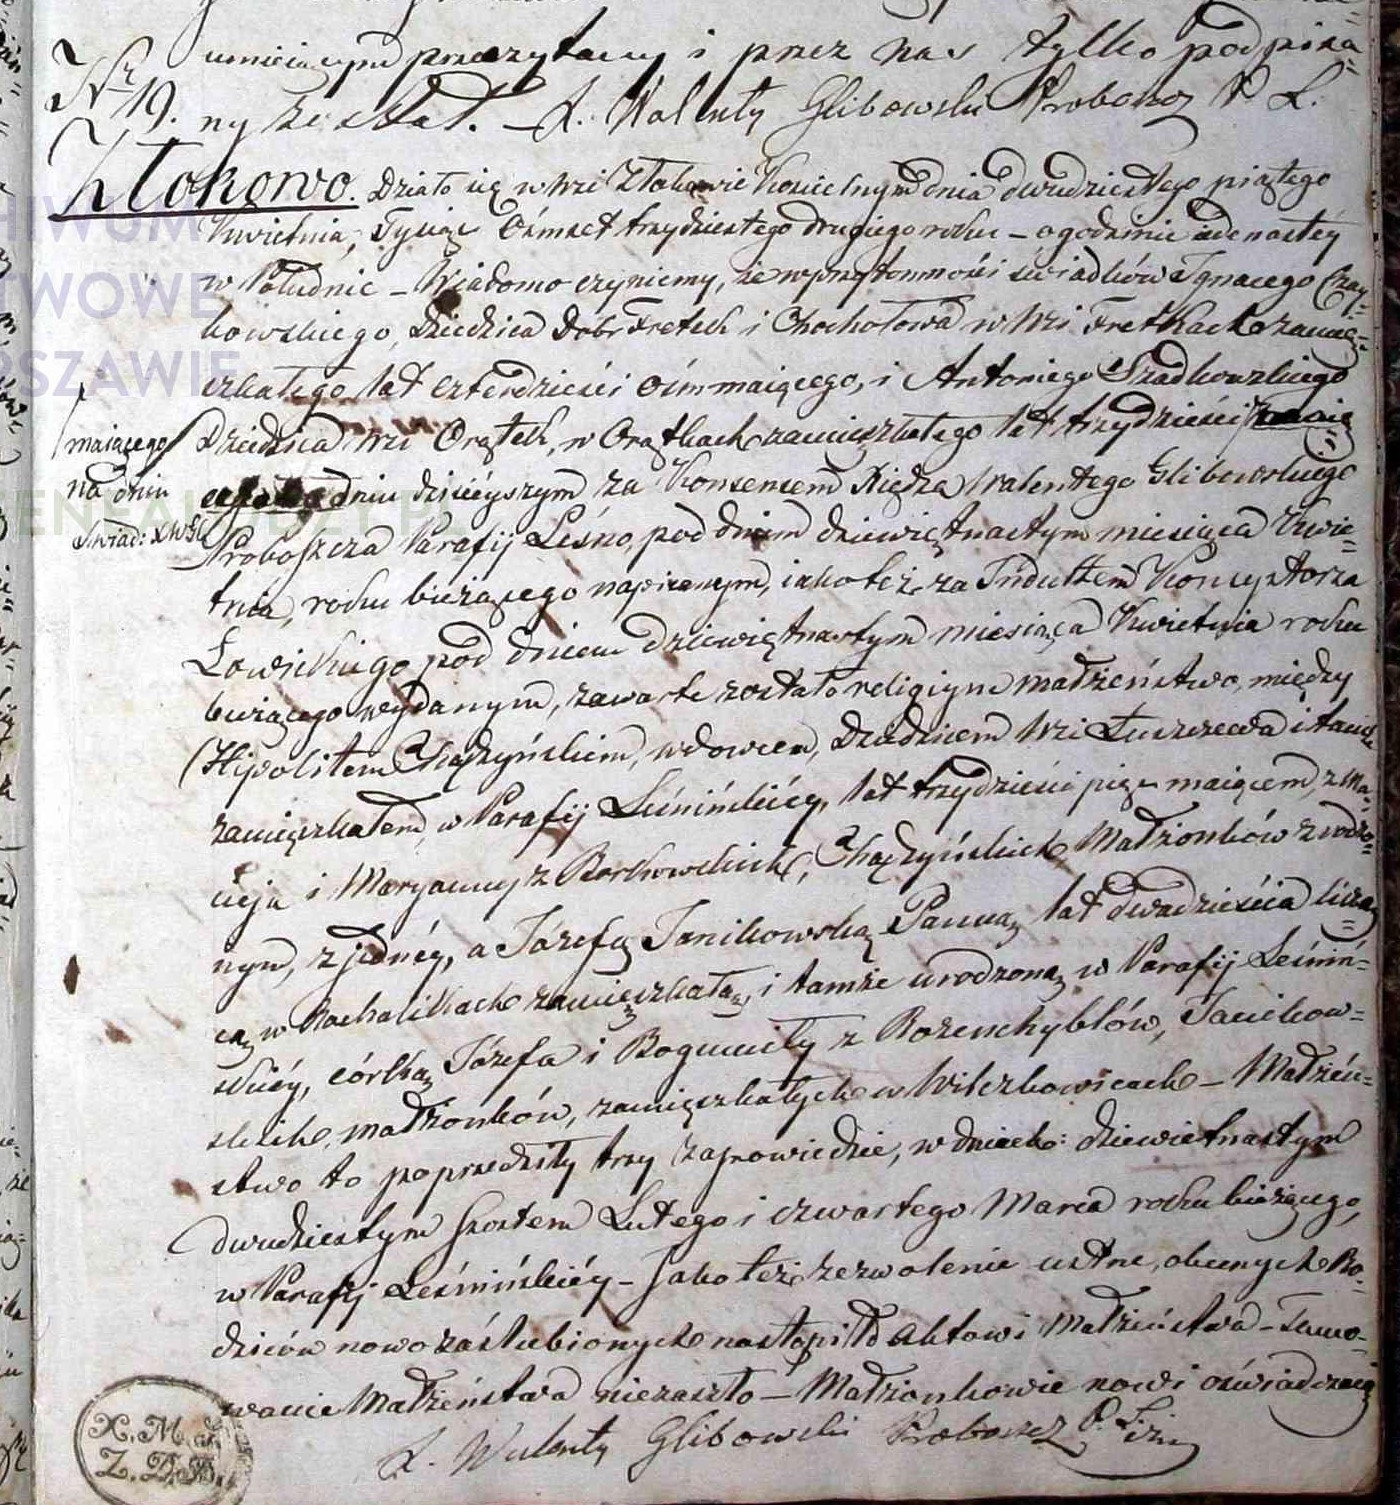 umieiącym przeczytany i przez nas tylko podpisa=
Nr 19. ny został. – X. Walenty Glibowski Proboszcz P. L.
Złokowo. Działo się w Wsi Złokowie Kościelnym dnia dwudziestego piątego
Kwietnia, Tysiąc Ośmset trzydziestego drugiego roku – o godzinie iedenastéy
w Południe – Wiadomo czyniemy, że w przytomności świadków Ignacego Czay=
kowskiego, Dziedzica Dóbr Fretek i Chochołowa w Wsi Fretkach zamię=
szkałego lat czterdzieści ośm maiącego, i Antoniego Szadkowskiego
Dziedzica wsi Orątek, w Orątkach zamięszkałego lat trzydzieści
maiącego
na dniu
świad: XWGl
dniu dzisiéyszym za Konsensem Xiędza Walentego Glibowskiego
Proboszcza Parafij Leśno, pod dniem dziewiętnastym miesiąca Kwie=
tnia, roku bieżącego napisanym, iako też za Indultem Konsystorza
Łowickiego pod dniem dziewiętnastym miesiąca Kwietnia roku
bieżącego wydanym, zawarte zostało religiyne małżeństwo, między
Hipolitem Chądzyńskiem, wdowcem, Dziedzicem Wsi Łuszczewa i tamże
zamięszkałem, w Parafij Leśnińskiéy, lat trzydzieści pięć maiącem, z Ma=
cieja i Maryanny z Borkowskich, Chądzyńskich Małżonków zrodzo=
nym, z jednéy, a Józefą Janikowską Panną lat dwadzieścia licza=
cą w Kachalikach zamięszkałą, i tamże urodzoną w Parafij Leśniń=
skiéy, córką Józefa i Bogumiły z Rozenchyblów, Janikow=
skich małżonków, zamięszkałych w Wilczkowicach – Małżeń=
stwo to poprzedziły trzy zapowiedzie, w dniach: dziewietnastym
dwudziestym szostem Lutego i czwartego Marca roku bieżącego,
w Parafij Leśnińskiéy – Jako też zezwolenie ustne, obecnych Ro=
dziców nowozaślubionych nastąpiło Aktowi Małżeństwa – Tamo=
wanie Małżeństwa niezaszło – Małżonkowie nowi oświadczaią
X. Walenty Glibowski Proboszcz P. Leśn
X. M.
Z. D.